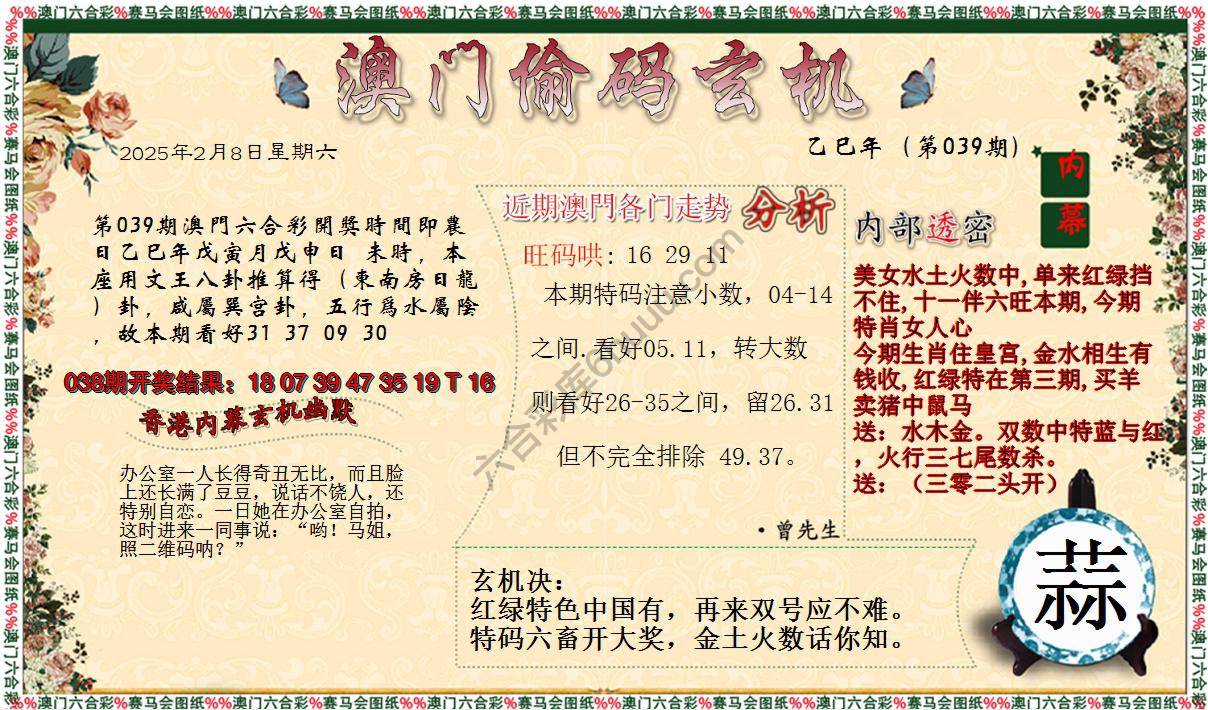 %%澳门六合彩%赛马会图纸%%澳门六合彩%赛马会图纸%%澳门六合彩%赛马会图纸%%澳门六合彩%赛马会图纸%%澳门六合彩%赛马会图纸%%澳门六合彩%赛马会图纸%%
澳门偷码玄机
2025年2月8日星期六
乙巳年（第039期）
内幕
第039期澳門六合彩開獎時間即農
日乙巳年戊寅月戊申日 未時，本
座用文王八卦推算得（東南房日龍
）卦，咸屬巽宫卦，五行爲水屬陰
，故本期看好31 37 09 30
038期开奖结果：18 07 39 47 35 19 T 16
香港内幕玄机幽默
办公室一人长得奇丑无比，而且脸
上还长满了豆豆，说话不饶人，还
特别自恋。一日她在办公室自拍，
这时进来一同事说：“哟！马姐，
照二维码呐？”
近期澳門各门走势 分析
旺码哄：16 29 11
本期特码注意小数，04-14
之间.看好05.11，转大数
则看好26-35之间，留26.31
但不完全排除 49.37。
·曾先生
内部透密
美女水土火数中,单来红绿挡
不住,十一伴六旺本期,今期
特肖女人心
今期生肖住皇宫,金水相生有
钱收,红绿特在第三期,买羊
卖猪中鼠马
送：水木金。双数中特蓝与红
，火行三七尾数杀。
送：（三零二头开）
玄机决：
红绿特色中国有，再来双号应不难。
特码六畜开大奖，金土火数话你知。
蒜
%%澳门六合彩%赛马会图纸%%澳门六合彩%赛马会图纸%%澳门六合彩%赛马会图纸%%澳门六合彩%赛马会图纸%%澳门六合彩%赛马会图纸%%澳门六合彩%赛马会图纸%%